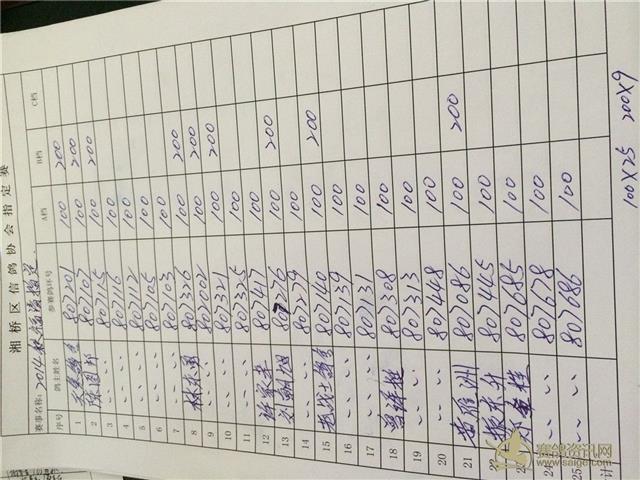 湘桥区信鸽协会指定赛
赛事名称: 2014秋
序号 鸽主姓名 参赛鸽环号 A档 B档 C档
1 807201 100 200
2 陈国邦 807107 100 200
3 〃 〃 807115 100 200
4 〃 〃 807116 100
5 〃 〃 807112 100
6 〃 〃 807105 100
7 〃 〃 807103 100 200
8 林东勇 807326 100 200
9 〃 〃 801002 100 200
10 〃 〃 807321 100
11 〃 〃 807325 100
12 807417 100 200
13 807276 100
14 〃 〃 807279 100
15 807140 100 200
16 〃 〃 807139 100
17 〃 〃 807131 100
18 807308 100
19 〃 〃 807313 100
20 〃 〃 807448 100
21 黄雁洲 807086 100 200
22 蔡东升 807445 100
23 807685 100
24 〃 〃 807678 100
25 〃 〃 807686 100
计
100×25 200×9
赛鸽资讯网
www.saige.com